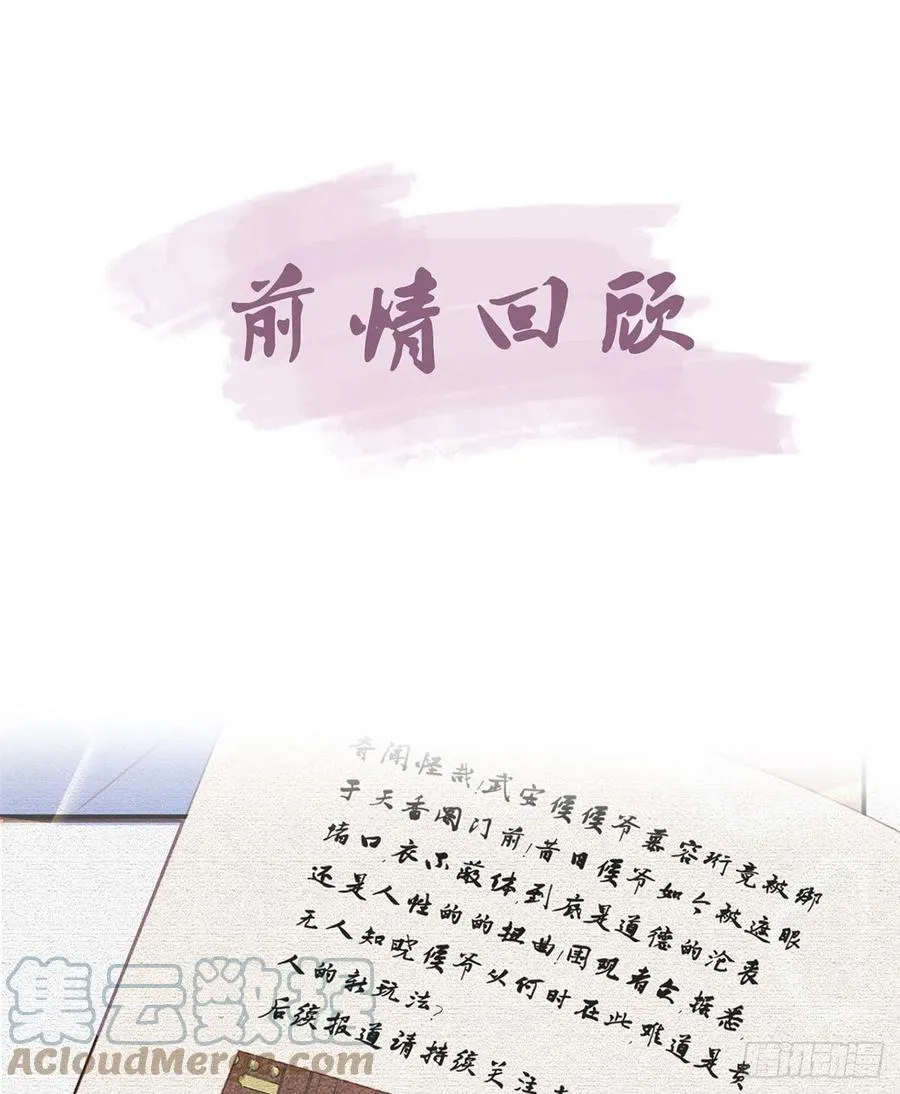 前情回顾
奇闻怪哉!武安侯侯爷慕容珩竟被绑
于天香阁门前!昔日侯爷如今被遮眼
堵口,衣不蔽体,到底是道德的沦丧
还是人性的的扭曲!围观者众,据悉,
无人知晓侯爷以何时在此,难道是贵
人的新玩法?
后续报道请持续关注
集云数据
AcloudMerge.com
腾讯动漫